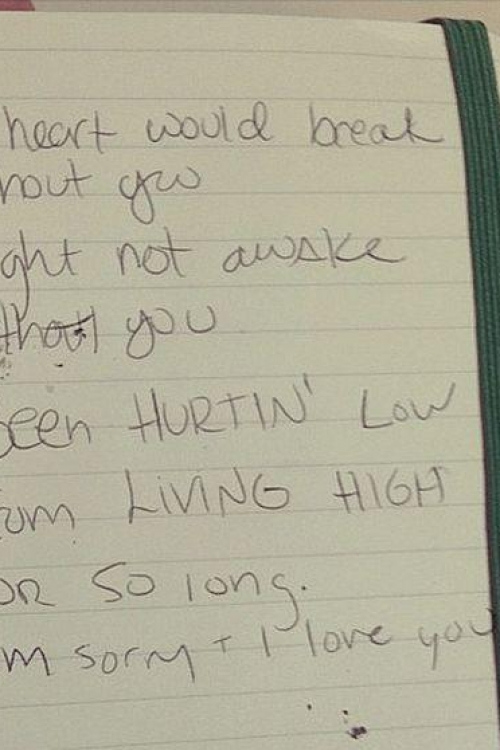 heart would break
hout you
ght not awake
thout you
been HURTIN' LOW
rom LIVING HIGH
OR SO long.
m sorry + I love you